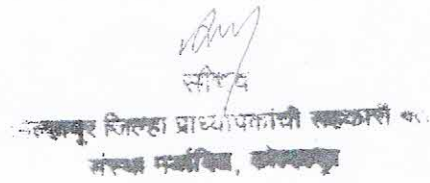 सचिव
जिल्हा प्राध्यापकांची सहकारी
संस्था मर्यादित, कोल्हापूर